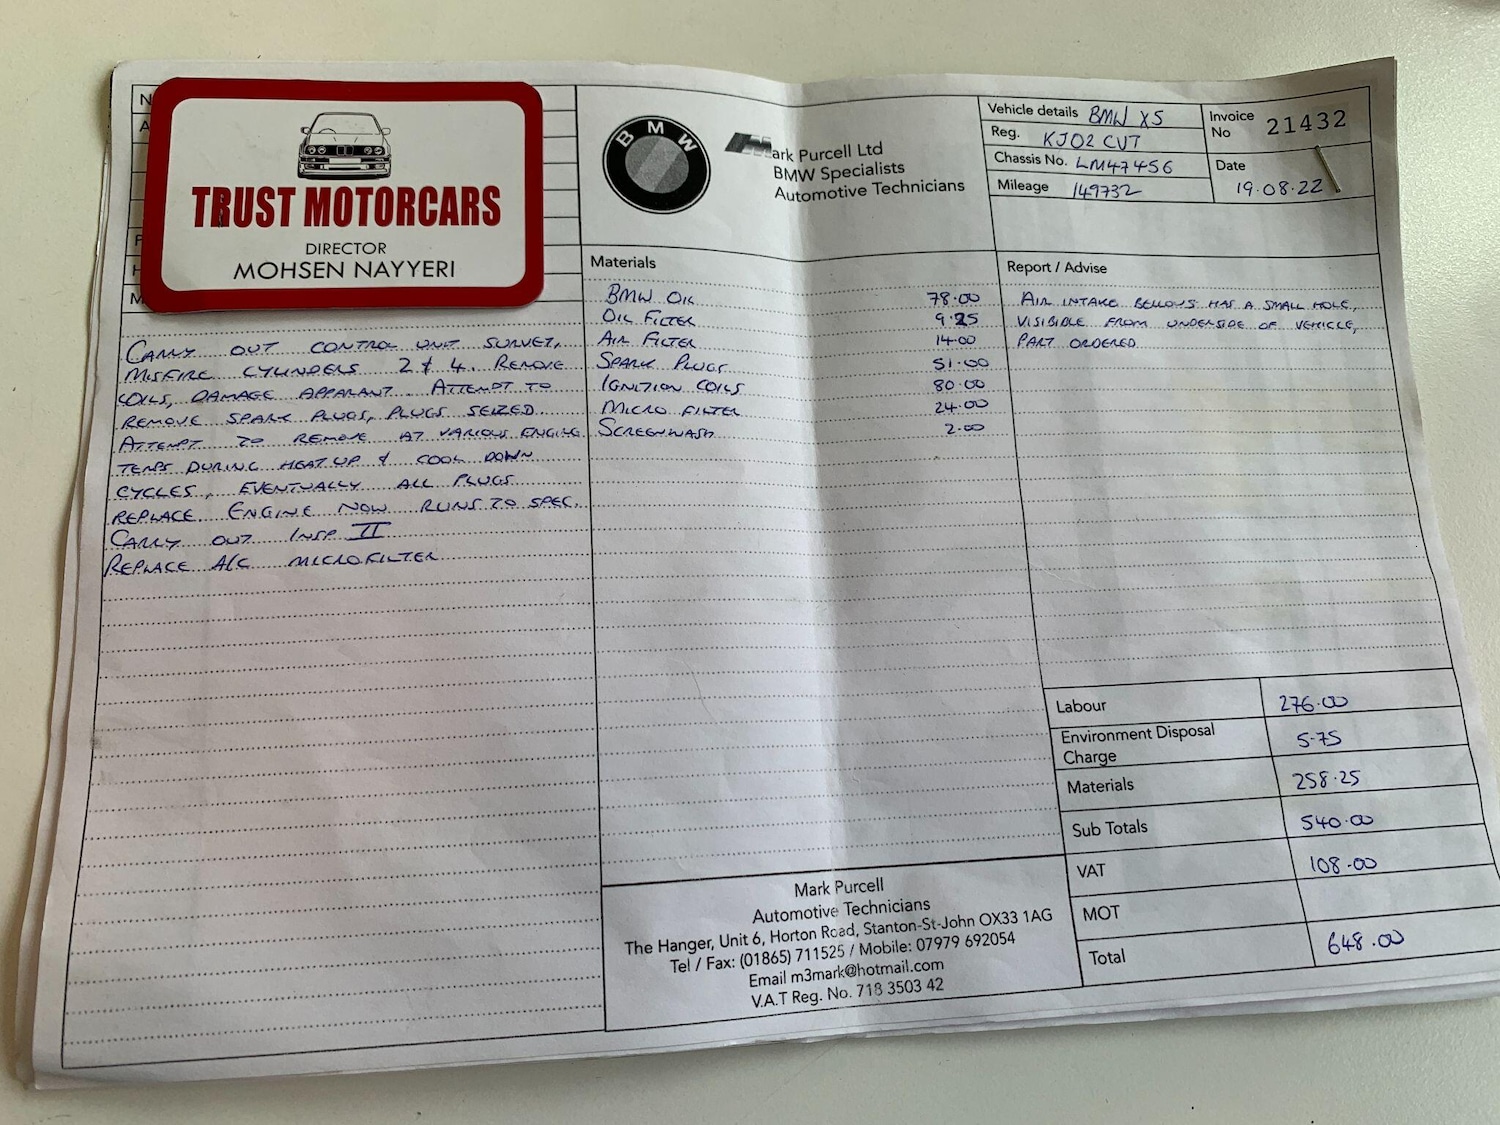 TRUST MOTORCARS
DIRECTOR
MOHSEN NAYYERI
N
A
H
M
CARRY OUT CONTROL UNIT SURVEY,
MISFIRE CYLINDERS 2 & 4. REMOVE
COILS, DAMAGE APPARANT. ATTEMPT TO
REMOVE SPARK PLUGS, PLUGS SEIZED
ATTEMPT TO REMOVE AT VARIOUS ENGINE
TEMPS DURING HEAT UP & COOL DOWN
CYCLES, EVENTUALLY ALL PLUGS
REPLACE. ENGINE NOW RUNS TO SPEC.
CARRY OUT INSP II
REPLACE A/C MICROFILTER
BMW
Mark Purcell Ltd
BMW Specialists
Automotive Technicians
Materials
BMW OIL 78.00
OIL FILTER 9.25
AIR FILTER 14.00
SPARK PLUGS 51.00
IGNITION COILS 80.00
MICRO FILTER 24.00
SCREENWASH 2.00
Vehicle details BMW X5
Reg. KJ02 CVT
Chassis No. LM47456
Mileage 149732
Invoice
No 21432
Date
19.08.22
Report / Advise
AIR INTAKE BELLOWS HAS A SMALL HOLE,
VISIBIBLE FROM UNDERSIDE OF VEHICLE,
PART ORDERED
Labour 276.00
Environment Disposal
Charge 5.75
Materials 258.25
Sub Totals 540.00
VAT 108.00
MOT
Total 648.00
Mark Purcell
Automotive Technicians
The Hanger, Unit 6, Horton Road, Stanton-St-John OX33 1AG
Tel / Fax: (01865) 711525 / Mobile: 07979 692054
Email m3mark@hotmail.com
V.A.T Reg. No. 718 3503 42